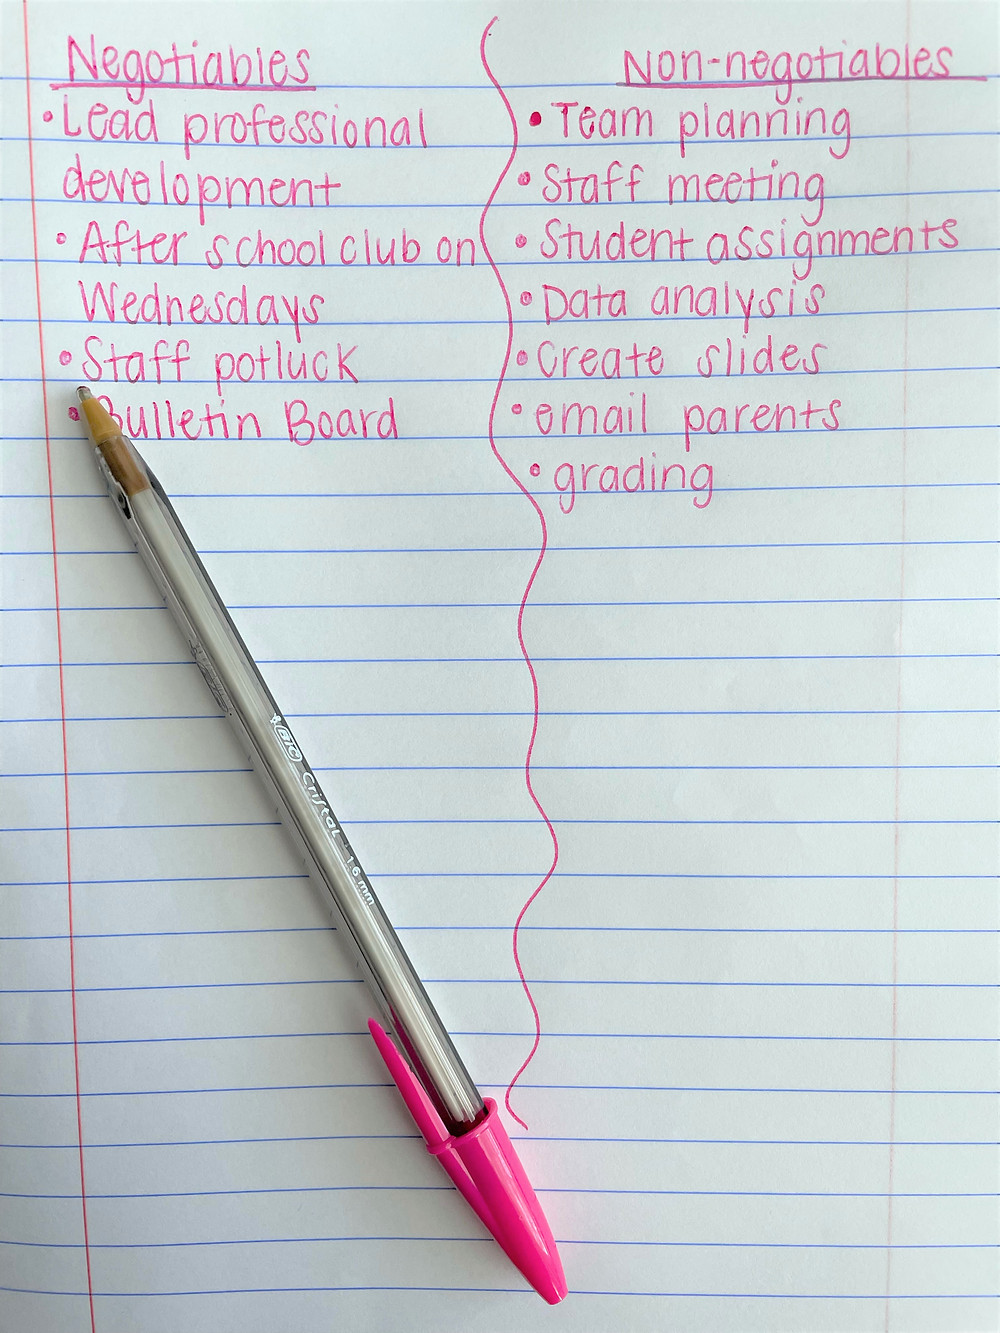 Negotiables
• Lead professional
development
• After school club on
Wednesdays
• Staff potluck
• Bulletin Board
Non-negotiables
• Team planning
• Staff meeting
• Student assignments
• Data analysis
• Create slides
• email parents
• grading
BIC Cristal 1.6 mm